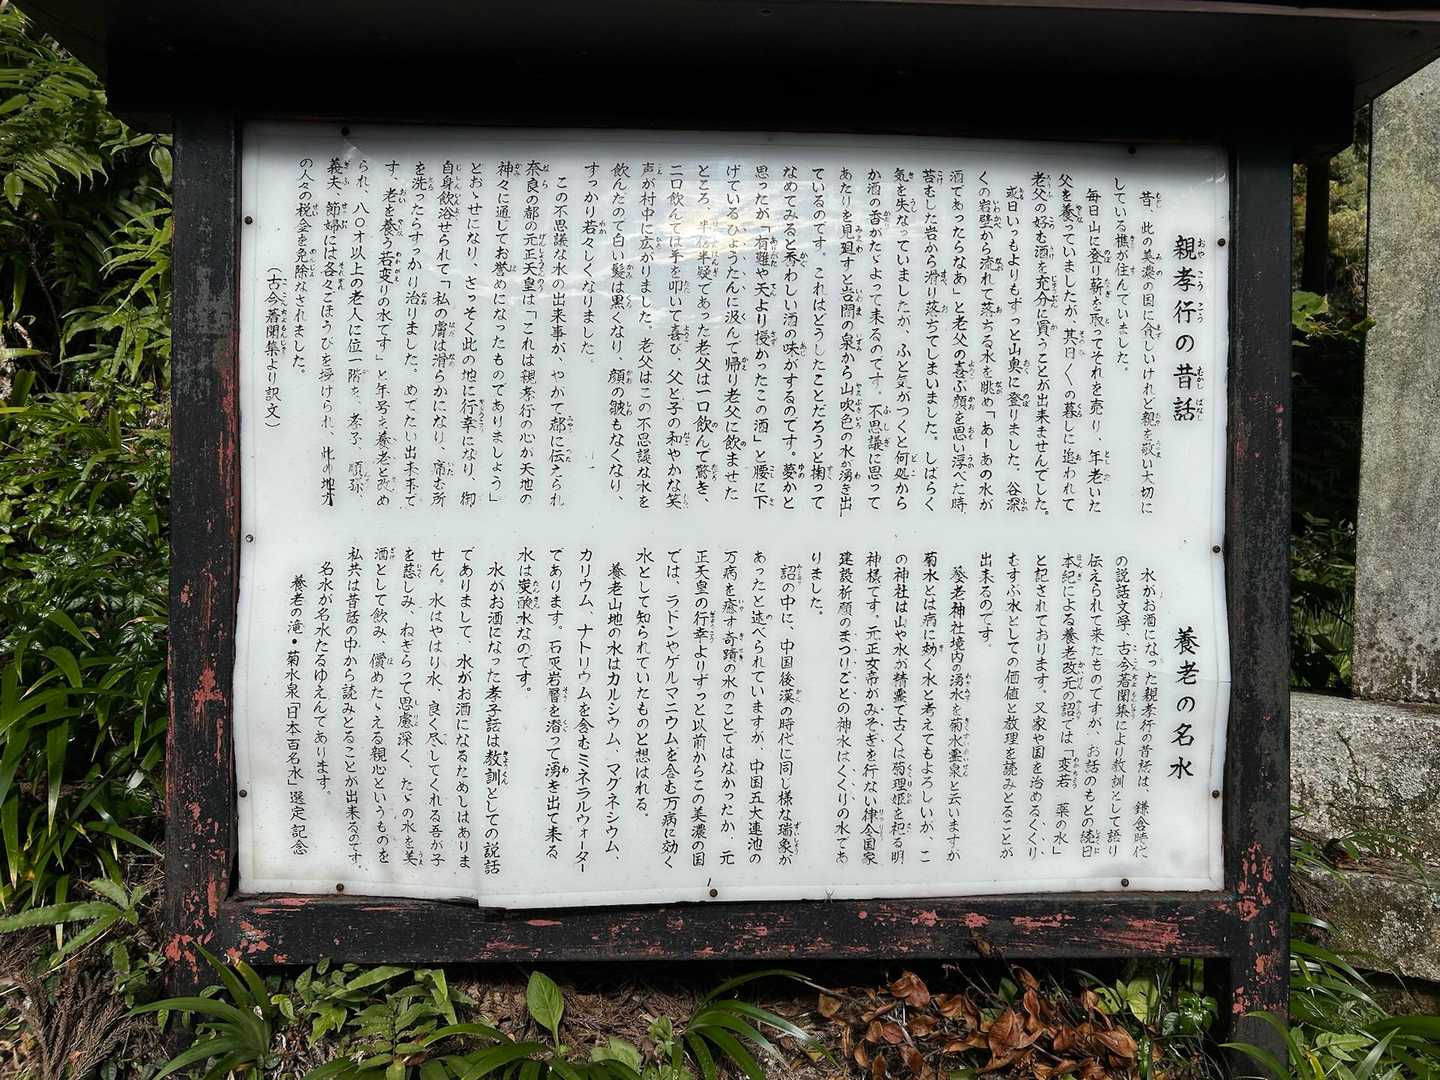 親孝行の昔話
昔、此の美濃の国に貧しいけれど親を敬い大切に
している樵が住んていました。
毎日山に登り薪を取ってそれを売り、年老いた
父を養っていましたが、其日〱の暮しに追われて
老父の好む酒を充分に買うことが出来ませんでした。
或日いつもよりもずっと山奥に登りました。谷深
くの岩壁から流れて落ちる水を眺め「あーあの水が
酒であったらなあ」と老父の喜ぶ顔を思い浮べた時、
苔むした岩から滑り落ちてしまいました。しばらく
気を失なっていましたが、ふと気がつくと何処から
か酒の香がたゞよって来るのです。不思議に思って
あたりを見廻すと岩間の泉から山吹色の水が湧き出
ているのです。これはどうしたことだろうと掬って
なめてみると香わしい酒の味がするのです。夢かと
思ったが「有難や天より授かったこの酒」と腰に下
げているひょうたんに汲んて帰り老父に飲ませた
ところ、半信半疑であった老父は一口飲んて驚き、
二口飲んては手を叩いて喜び、父と子の和やかな笑
声が村中に広がりました。老父はこの不思議な水を
飲んたので白い髪は黒くなり、顔の皺もなくなり、
すっかり若々しくなりました。
この不思議な水の出来事が、やがて都に伝えられ
奈良の都の元正天皇は「これは親孝行の心か天地の
神々に通じてお誉めになったものでありましょう」
とおゝせになり、さっそく此の地に行幸になり、御
自身飲浴せられて「私の膚は滑らかになり、痛む所
を洗ったらすっかり治りました。めてたい出来事て
す。老を養う若変りの水てす」と年号を養老と改め
られ、八〇才以上の老人に位一階を、孝子、順孫、
義夫、節婦には各々ごほうびを授けられ、此の地方
の人々の税金を免除なされました。
(古今著聞集より訳文)
養老の名水
水がお酒になった親孝行の昔話は、鎌倉時代
の説話文学、古今著聞集により教訓として語り
伝えられて来たものてすが、お話のもとの続日
本紀による養老改元の詔では「変若 薬の水」
と記されております。又家や国を治めるくくり
むすぶ水としての価値と教理を読みとることが
出来るのてす。
養老神社境内の湧水を菊水霊泉と云いますが
菊水とは病に効く水と考えてもよろしいが、こ
の神社は山や水が精霊て古くは菊理姫を祀る明
神様てす。元正女帝がみそぎを行ない律令国家
建設祈願のまつりごとの神水はくくりの水てあ
りました。
詔の中に、中国後漢の時代に同し様な瑞象が
あったと述べられていますが、中国五大連池の
万病を癒す奇蹟の水のことではなかったか、元
正天皇の行幸よりずっと以前からこの美濃の国
では、ラドンやゲルマニウムを含む万病に効く
水として知られていたものと想はれる。
養老山地の水はカルシウム、マグネシウム、
カリウム、ナトリウムを含むミネラルウォーター
であります。石灰岩層を潜って湧き出て来る
水は炭酸水なのです。
水がお酒になった孝子話は教訓としての説話
てありまして、水がお酒になるためしはありま
せん。水はやはり水、良く尽してくれる吾が子
を慈しみ、ねぎらって思慮深く、たゞの水を美
酒として飲み、償めたゝえる親心というものを
私共は昔話の中から読みとることが出来るのてす。
名水が名水たるゆえんてあります。
養老の滝・菊水泉「日本百名水」選定記念